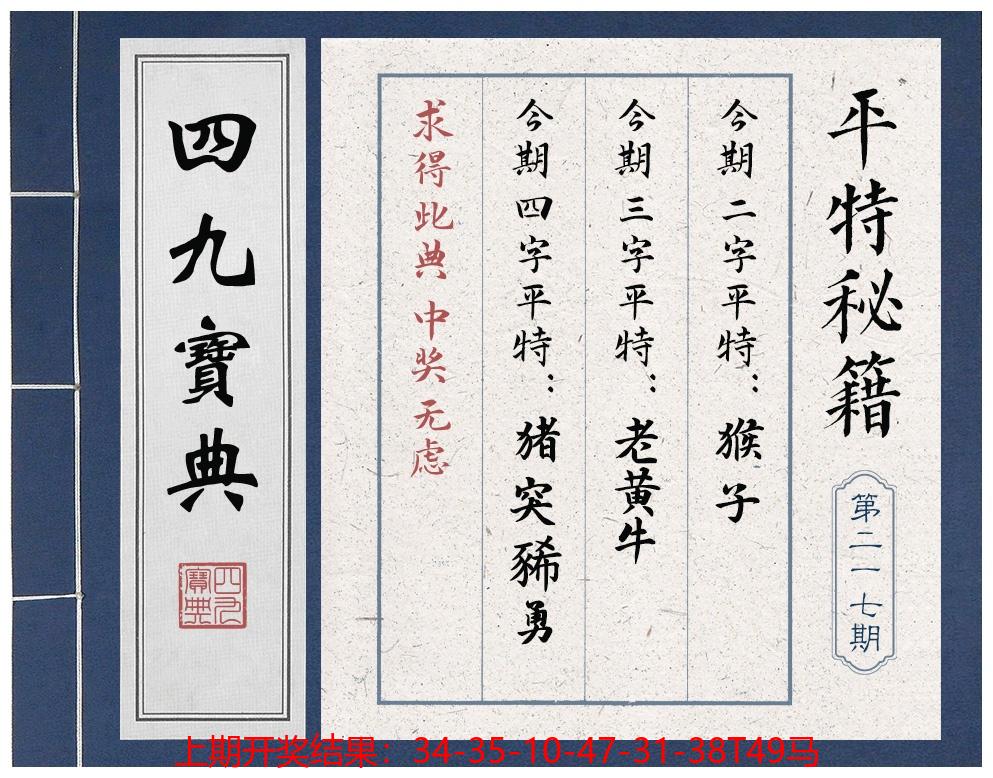 平特秘籍
第二一七期
今期二字平特：猴子
今期三字平特：老黄牛
今期四字平特：猪突豨勇
求得此典 中奖无虑
四九寶典
四九寶典
上期开奖结果：34-35-10-47-31-38T49马